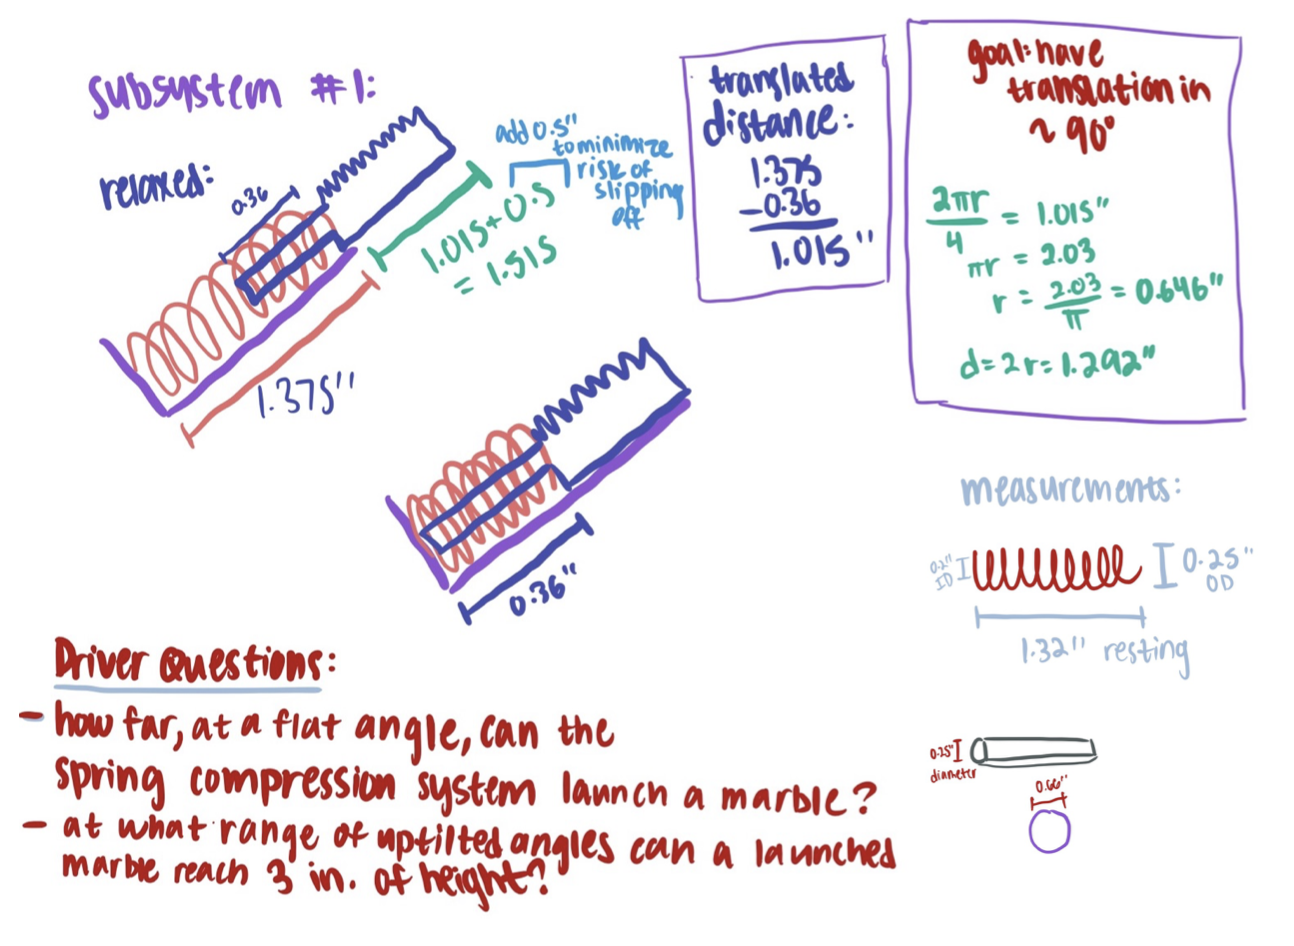 subsystem #1:
relaxed:
0.36
1.015 + 0.5
= 1.515
add 0.5"
to minimize
risk of
slipping
off
1.375"
translated
distance:
1.375
-0.36
1.015"
goal: have
translation in
~ 90°
2πr/4 = 1.015"
πr = 2.03
r = 2.03/π = 0.646"
d = 2r = 1.292"
0.36"
measurements:
0.2"
ID
0.25"
OD
1.32" resting
0.25"
diameter
0.66"
Driver Questions:
- how far, at a flat angle, can the
spring compression system launch a marble?
- at what range of uptilted angles can a launched
marble reach 3 in. of height?